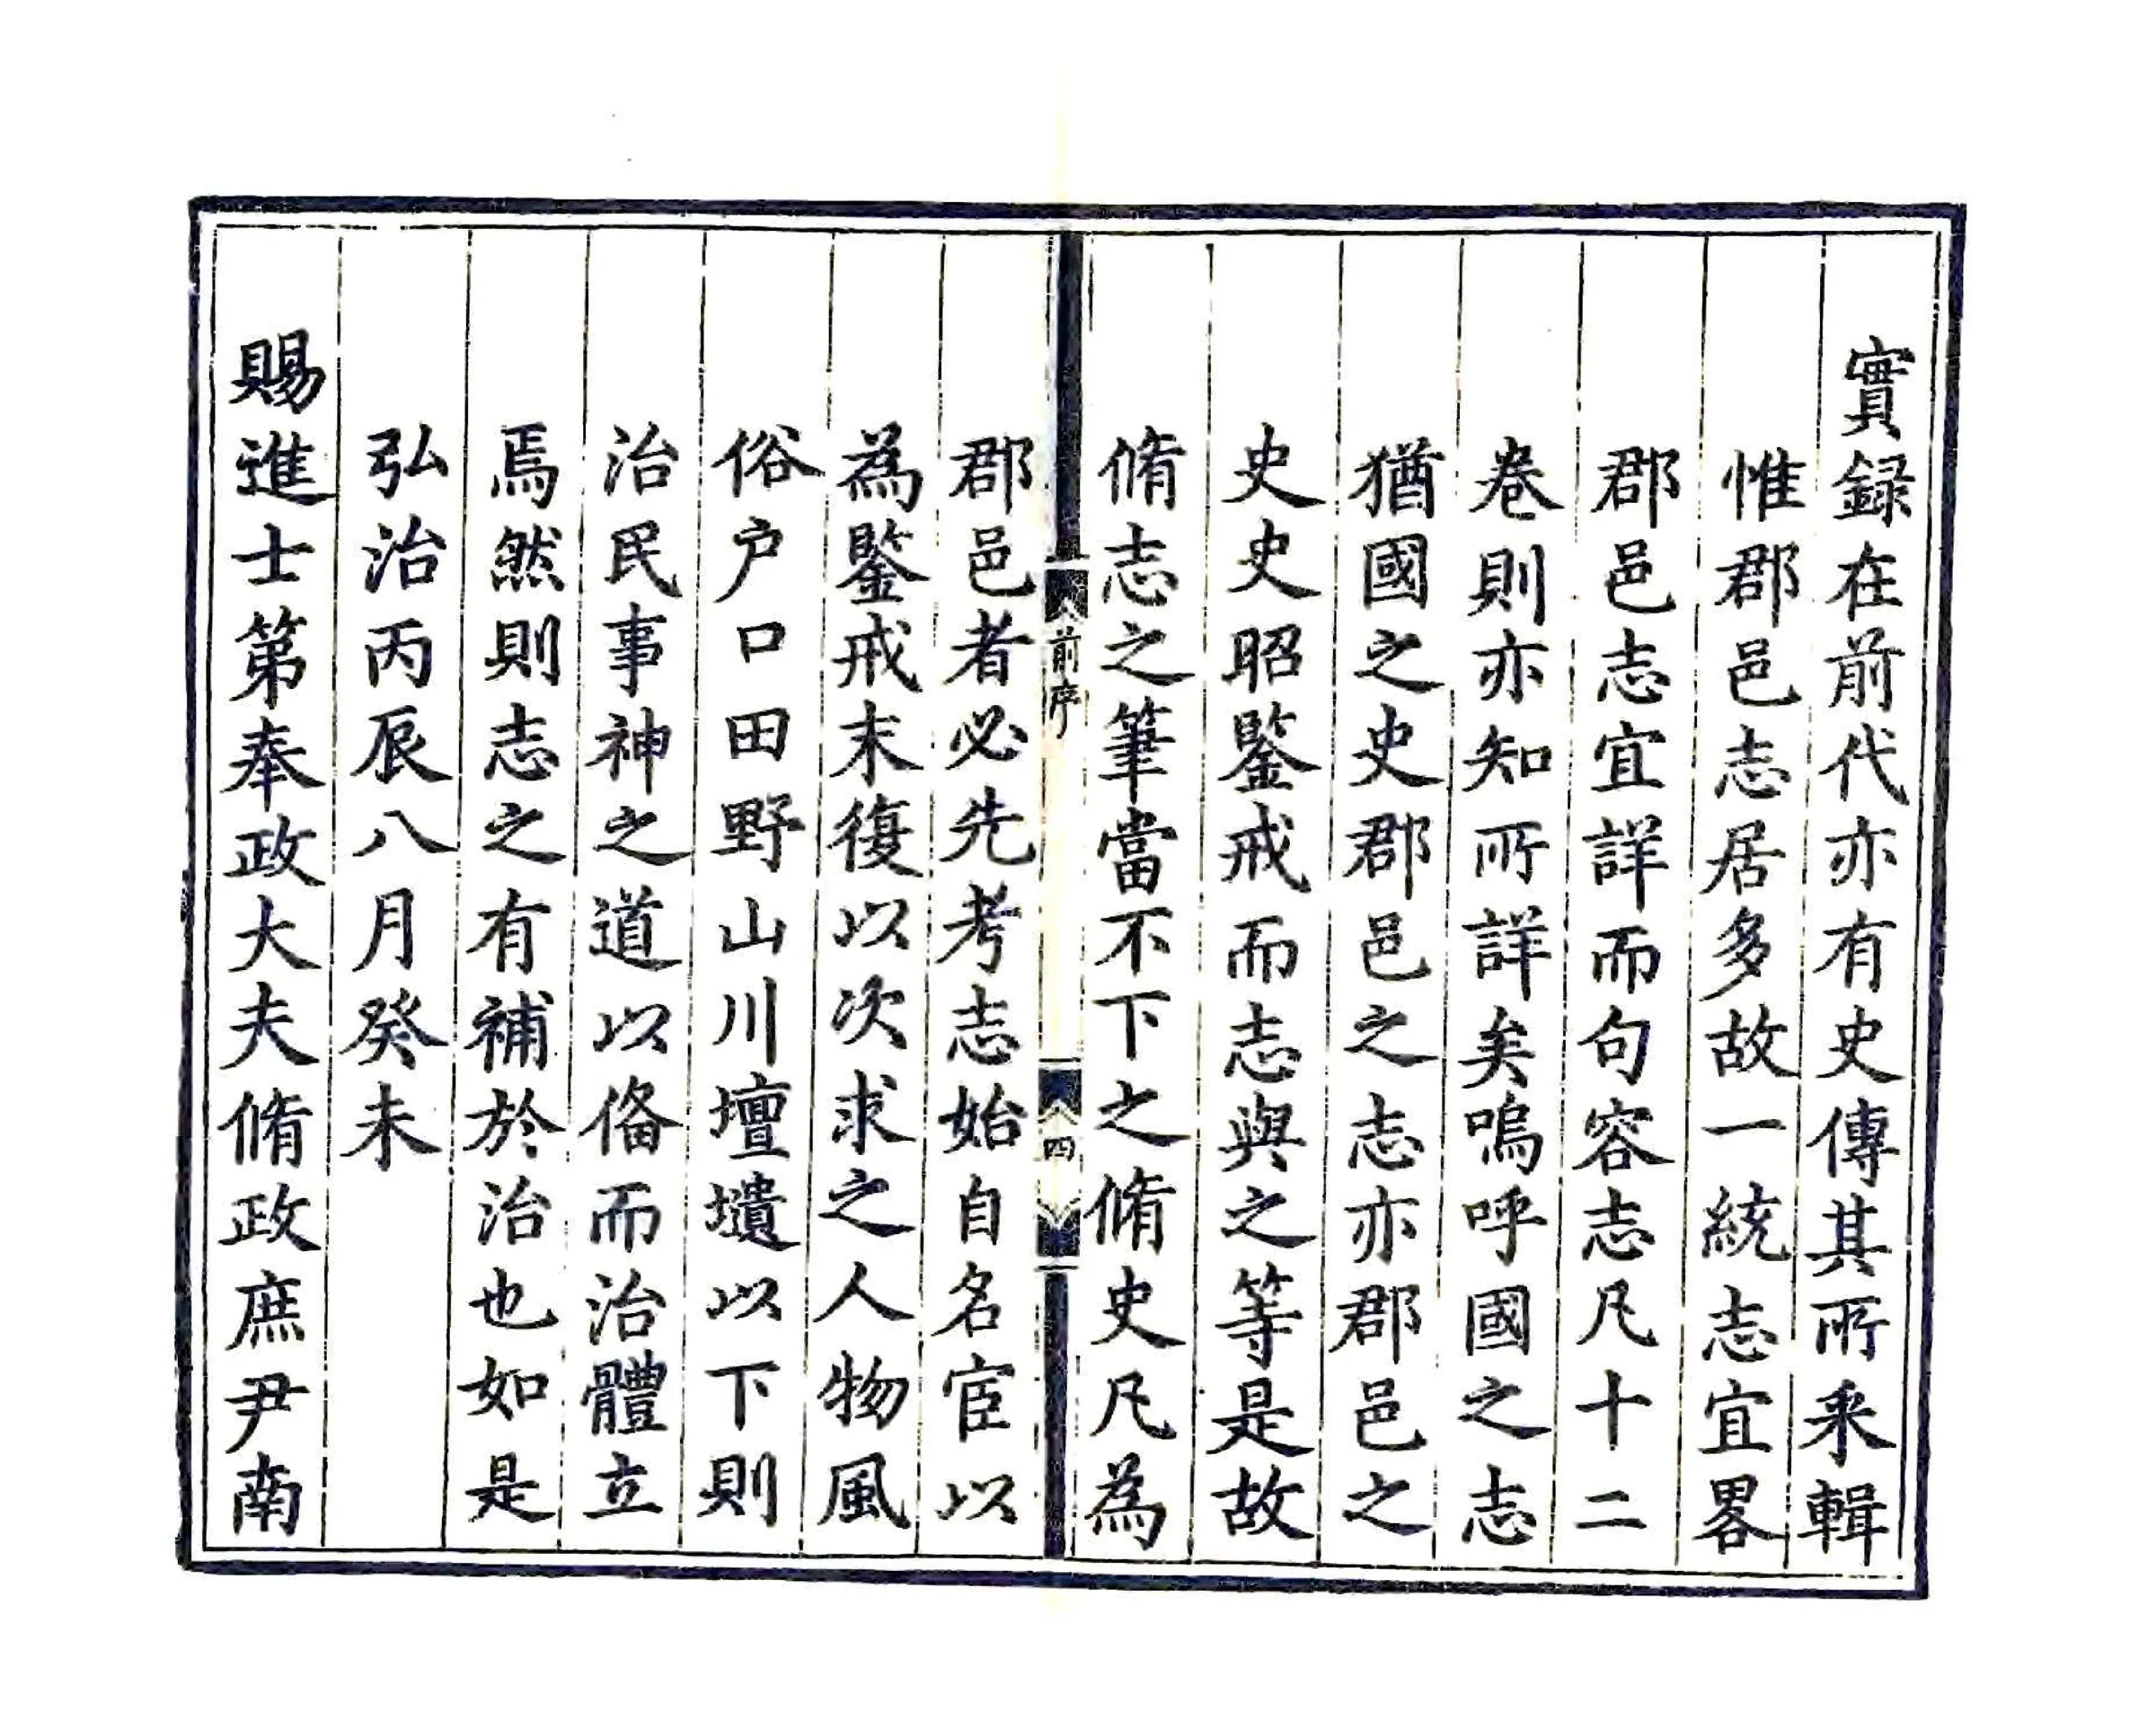 實録在前代亦有史傳其所采輯
惟郡邑志居多故一統志宜畧
郡邑志宜詳而句容志凡十二
卷則亦知所詳矣嗚呼國之志
猶國之史郡邑之志亦郡邑之
史史昭鑒戒而志與之等是故
脩志之筆當不下之脩史凡為
前序
四
郡邑者必先考志始自名宦以
為鑒戒末復以次求之人物風
俗户口田野山川壇壝以下則
治民事神之道以俻而治體立
焉然則志之有補於治也如是
弘治丙辰八月癸未
賜進士第奉政大夫脩政庶尹南